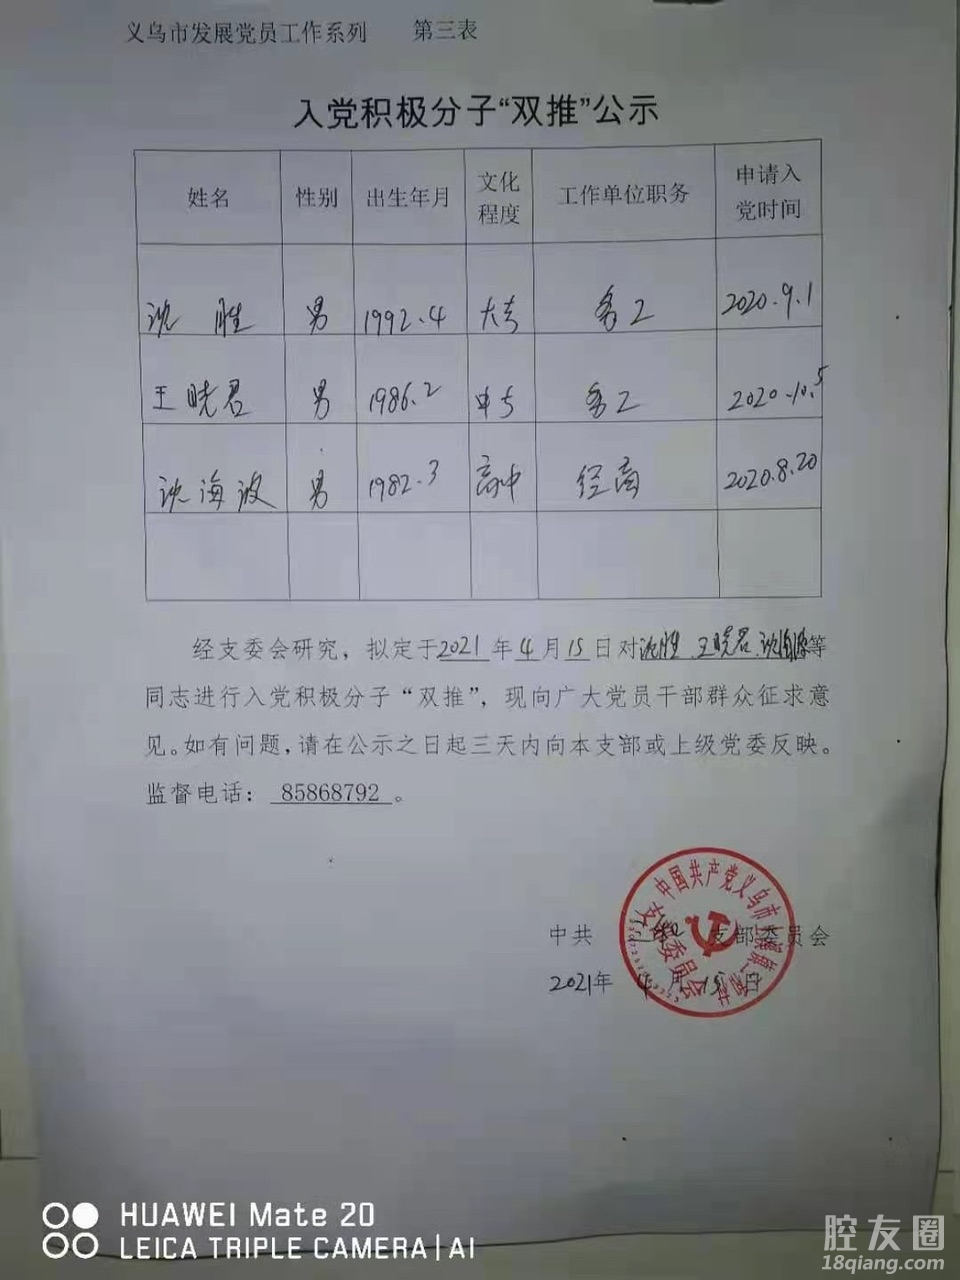 义乌市发展党员工作系列 第三表
入党积极分子“双推”公示
姓名 性别 出生年月 文化程度 工作单位职务 申请入党时间
沈胜 男 1992.4 大专 务工 2020.9.1
王晓君 男 1986.2 中专 务工 2020.10.5
沈海波 男 1982.3 高中 经商 2020.8.20
经支委会研究，拟定于2021年4月15日对沈胜、王晓君、沈海波等
同志进行入党积极分子“双推”，现向广大党员干部群众征求意
见。如有问题，请在公示之日起三天内向本支部或上级党委反映。
监督电话：85868792。
中国共产党义乌市
支部委员会
中共 支部委员会
2021年4月15日
HUAWEI Mate 20
LEICA TRIPLE CAMERA | AI
腔友圈
18qiang.com